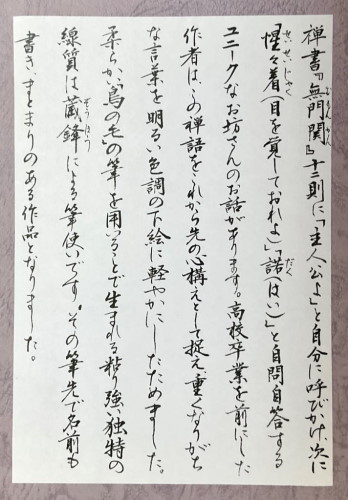 むもんかん
禅書『無門関』十二則に「主人公よ」と自分に呼びかけ、次に
せいせいじゃく だく
「惺々着(目を覚しておれよ)」「諾(はい)」と自問自答する
ユニークなお坊さんのお話があります。高校卒業を前にした
作者は、この禅語をこれから先の心構えとして捉え、重くなりがち
な言葉を明るい色調の下絵に軽やかにしたためました。
柔らか「鳥の毛」の筆を用いることで生まれる粘り強い独特の
ぞうほう
線質は蔵鋒による筆使いです。その筆先で名前も
書き、まとまりのある作品となりました。